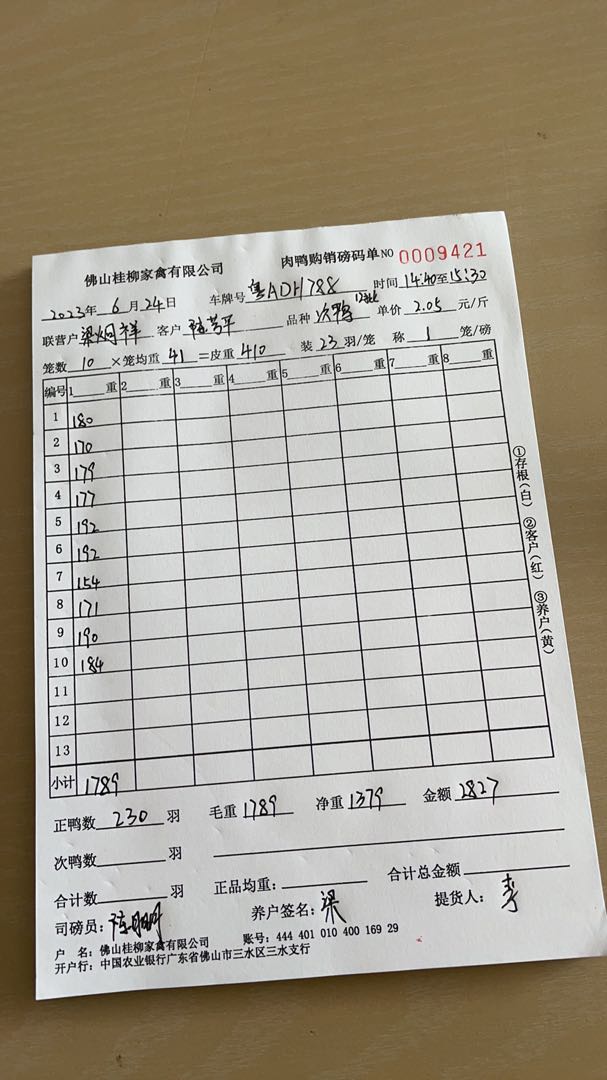 佛山桂柳家禽有限公司 肉鸭购销磅码单 NO 0009421
2023年 6 月 24 日 车牌号 粤ADH788 时间 14:40至15:30
联营户 梁炳祥 客户 陆芳平 品种 次鸭 单价 2.05 元/斤
笼数 10 ×笼均重 41 =皮重 410 装 23 羽/笼 称 1 笼/磅
编号 1 重 2 重 3 重 4 重 5 重 6 重 7 重 8 重
1 180
2 170
3 179
4 177
5 192
6 192
7 154
8 171
9 190
10 184
11
12
13
小计 1789
正鸭数 230 羽 毛重 1789 净重 1379 金额 2827
次鸭数 羽
合计数 羽 正品均重: 合计总金额
司磅员: 养户签名: 梁 提货人: 李
户 名: 佛山桂柳家禽有限公司 账号: 444 401 010 400 169 29
开户行: 中国农业银行广东省佛山市三水区三水支行
①存根(白) ②客户(红) ③养户(黄)